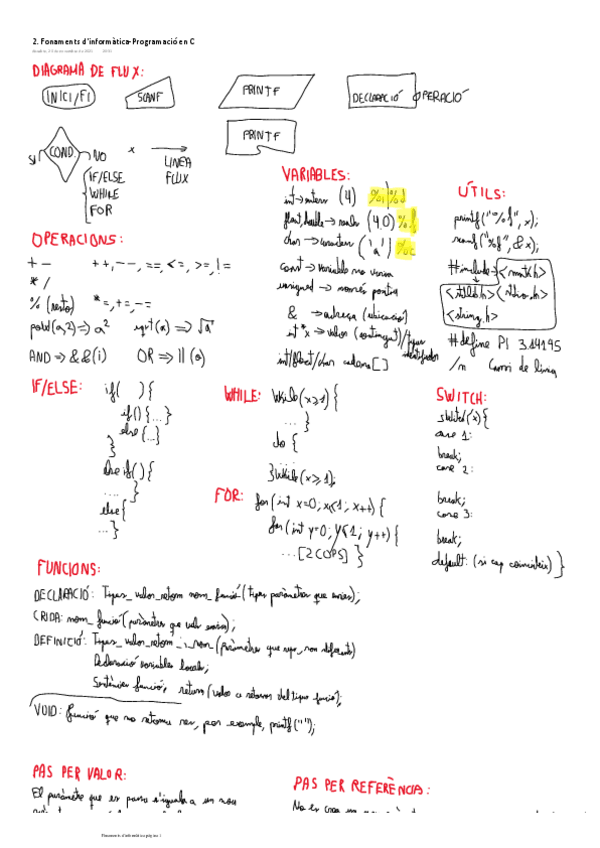 2. Fonaments d'informàtica-Programació en C
DIAGRAMA DE FLUX:
INICI/FI
SCANF
PRINTF
DECLARACIÓ OPERACIÓ
PRINTF
SI
COND.
NO
x
LINEA
FLUX
IF/ELSE
WHILE
FOR
VARIABLES:
int→enters (4) %i/%d
float, double→reals (4.0) %f
char→caracters ('a') %c
const→variable no varia
unsigned → només positiu
& → adreça (ubicació)
int *x → valor (contingut)/tipus
identificador
int/float/char cadena[]
ÚTILS:
printf("%f", x);
scanf("%f", &x);
#include→<math.h>
<stdlib.h> <stdio.h>
<string.h>
#define PI 3.14195
/n Canvi de línia
OPERACIONS:
+ - ++, --, ==, <=, >=, !=
* /
% (resta) *=, +=, -=
pow(a,2)=> a² sqrt(a)=> √a
AND=> &&(i) OR=> ||(o)
IF/ELSE:
if( ){
if(){...}
else{...}
}
else if(){
.... }
else{
...}
WHILE:
While(x≥1){
... }
do {
}While(x≥1);
FOR:
for(int x=0; x≤1; x++){
for(int y=0; y≤1; y++){
...[2 COPS] }
SWITCH:
switch(x){
case 1:
break;
case 2:
break;
case 3:
break;
default: (si cap coincideix) }
FUNCIONS:
DECLARACIÓ: Tipus_valor_retorn nom_funció(tipus paràmetres que envies);
CRIDA: nom_funció(paràmetres que vols enviar);
DEFINICIÓ: Tipus_valor_retorn nom(paràmetres que reps, nom diferents)
Declaració variables locals;
Sentències funció, return(valor a retornar del tipus funció);
VOID: funció que no retorna res, per exemple, printf("");
PAS PER VALOR:
El paràmetre que es passa s'iguala a un nou
PAS PER REFERÈNCIA:
No es crea un
Fonaments d'informàtica pàgina 1